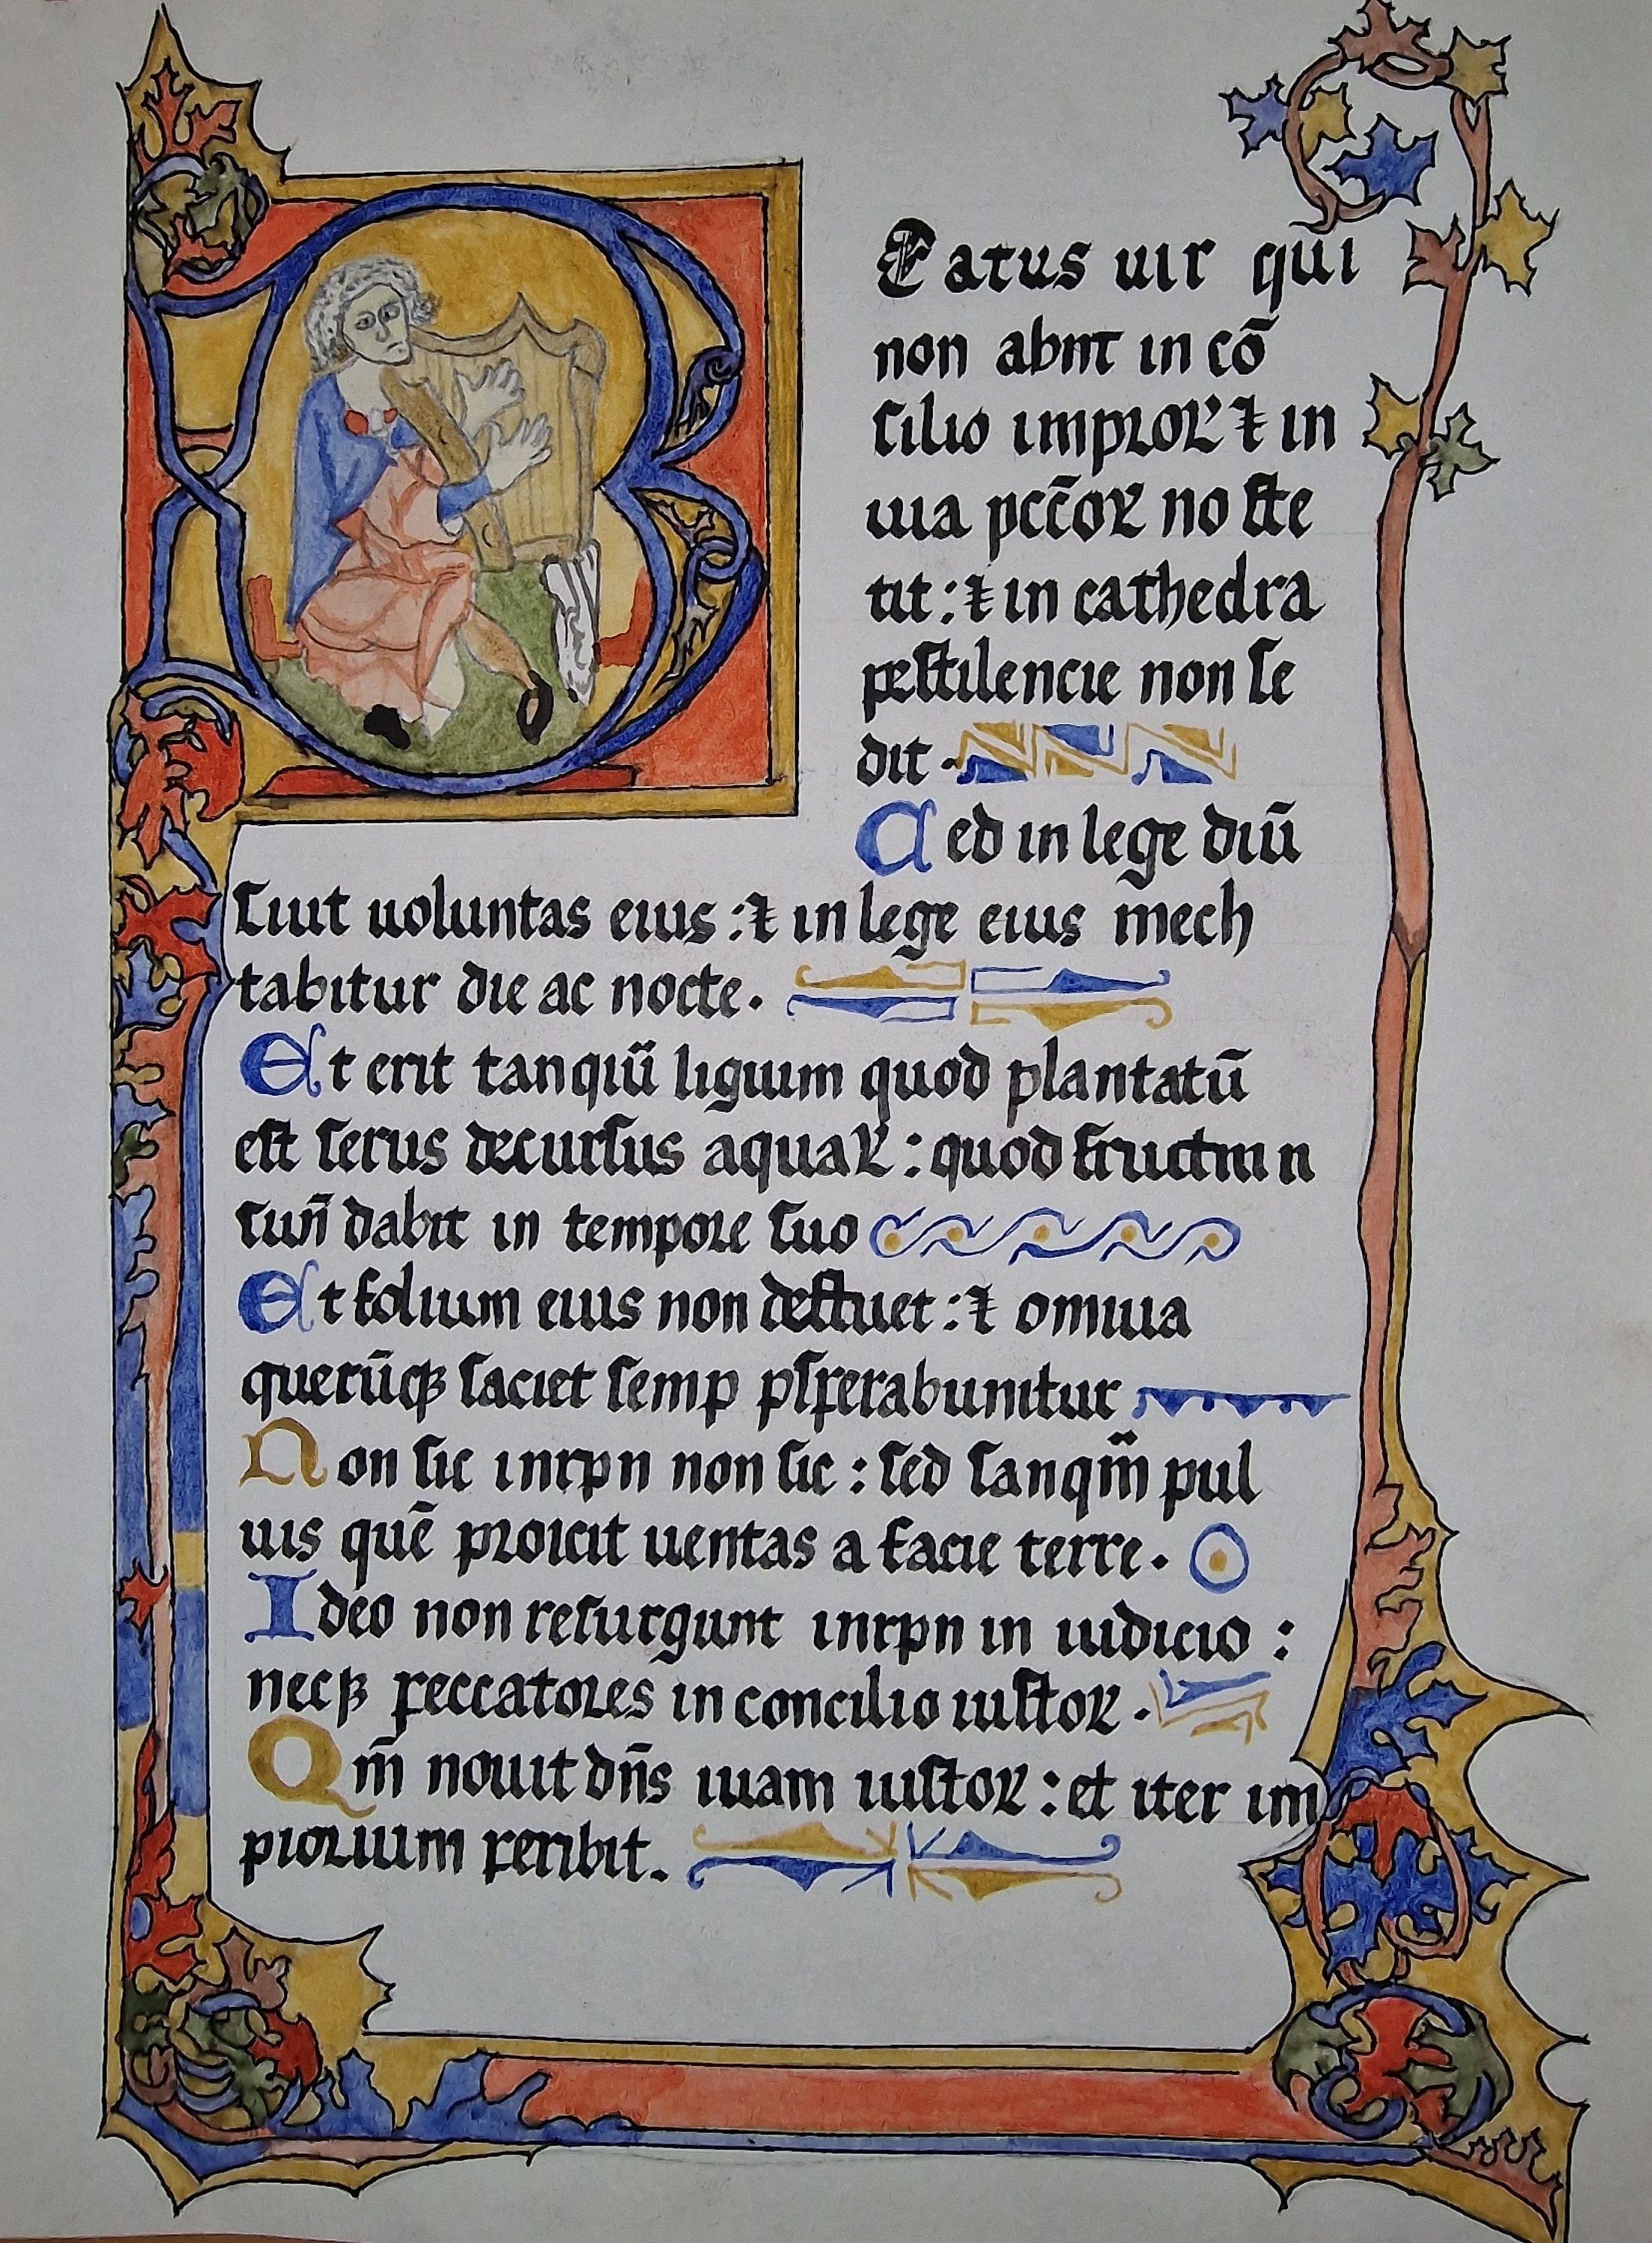 Eatus uir qui
non abnt in cō
silio impior ⁊ in
uia pcc̄oꝝ no ste
tit : ⁊ in cathedra
pestilencie non se
dit ·
Ced in lege diū
siut uoluntas eius : ⁊ in lege eius mech
tabitur die ac nocte.
Et erit tanqiū ligium quod plantatū
est serus decursus aquaꝝ : quod fructmi n
sun̄ dabit in tempore suo
Et folium eius non defluet : ⁊ omiua
querūqꝫ saciet semp psperabunitur
Non sic inrpn non sic : sed sanqm̄ pul
uis quē proicit uentas a facie terre.
Ideo non resurgunt inrpn in iudicio :
necqꝫ peccatores in concilio iustoꝝ ·
Qm̄ nouit dn̄s iuam iustoꝝ : et iter im
piorium peribit.